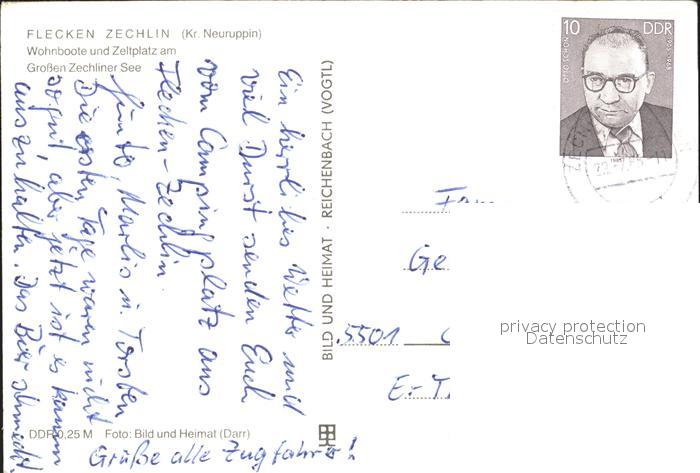 FLECKEN ZECHLIN (Kr. Neuruppin)
Wohnboote und Zeltplatz am
Großen Zechliner See
Ein herrliches Wetter und
viel Durst senden Euch
vom Campingplatz aus
Flecken-Zechlin.
Marlis u. Torsten
Die ersten Tage waren nicht
so gut, aber jetzt ist es kaum
auszuhalten. Das Bier schmeckt!
Grüße alle Zugfahrer!
DDR 0,25 M Foto: Bild und Heimat (Darr)
BILD UND HEIMAT · REICHENBACH (VOGTL)
10 DDR
OTTO SCHÖN
1905-1968
1985
Fam
Ge
5501
E.-T.
privacy protection
Datenschutz